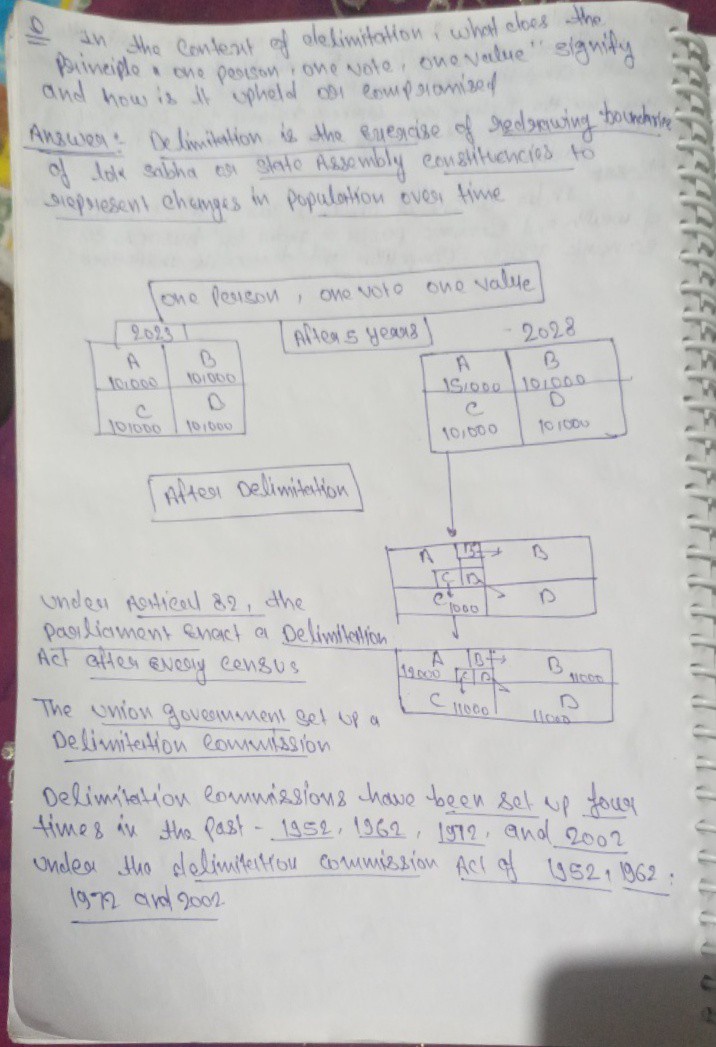 Q In the Context of delimitation, what does the
principle "one person, one vote, one value" signify
and how is it upheld or compromised
Answer: Delimitation is the exercise of redrawing boundries
of lok sabha or state Assembly constituencies to
represent changes in population over time
one Person, one vote one value
2023 After 5 years - 2028
A B
10,000 10,000
C D
10,000 10,000
A B
15,000 10,000
C D
10,000 10,000
After Delimitation
A B → B
C D
C 1000 D
A B → B
12000 C D 11000
C 11000 D
11000
Under Articel 82, the
Parliament Enact a Delimitation
Act after every census
The union government set up a
Delimitation Commission
Delimitation Commissions have been set up four
times in the Past - 1952, 1962, 1972, and 2002
under the delimitation commission Act of 1952, 1962,
1972 and 2002